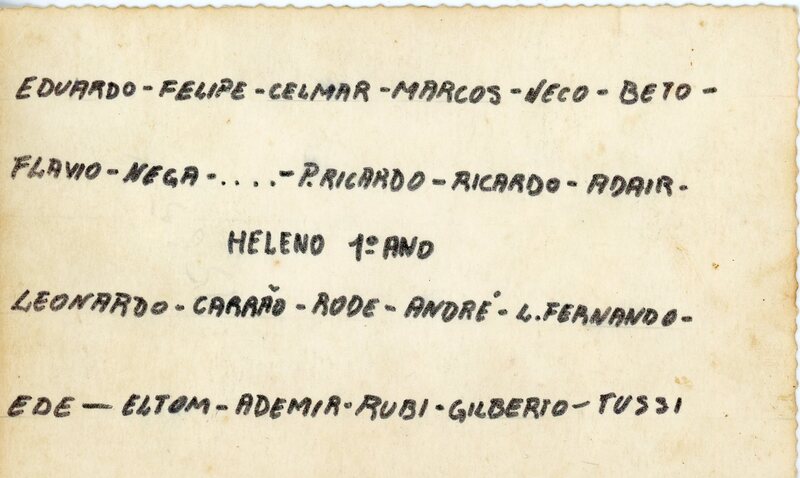 EDUARDO - FELIPE - CELMAR - MARCOS - NECO - BETO -
FLAVIO - NEGA - .... - P.RICARDO - RICARDO - ADAIR -
HELENO 1º ANO
LEONARDO - CARRÃO - RODE - ANDRÉ - L.FERNANDO -
EDE — ELTOM - ADEMIR - RUBI - GILBERTO - TUSSI